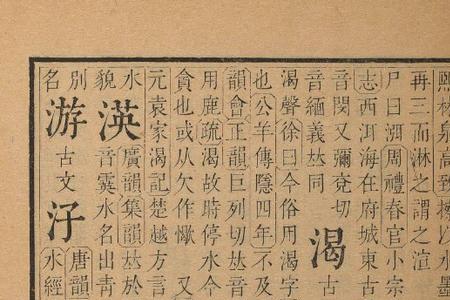 熙林泉高致以水墨
再三而淋之謂之渲
尸曰周禮春官小宗
志西洱海在府城東古
音閔又彌兗切
音緬義𠀤同
渴古
渴聲徐曰今俗用渴字
也公羊傳隱四年不及
韻會正韻巨列切𠀤
用鹿疏渴故時停水今
貪也或从欠作㵣又
元袁家渴記楚越方言
水
貌
渶
廣韻集韻𠀤於
音霙水名出青
別
名
游
古文
汓
唐韻
水經